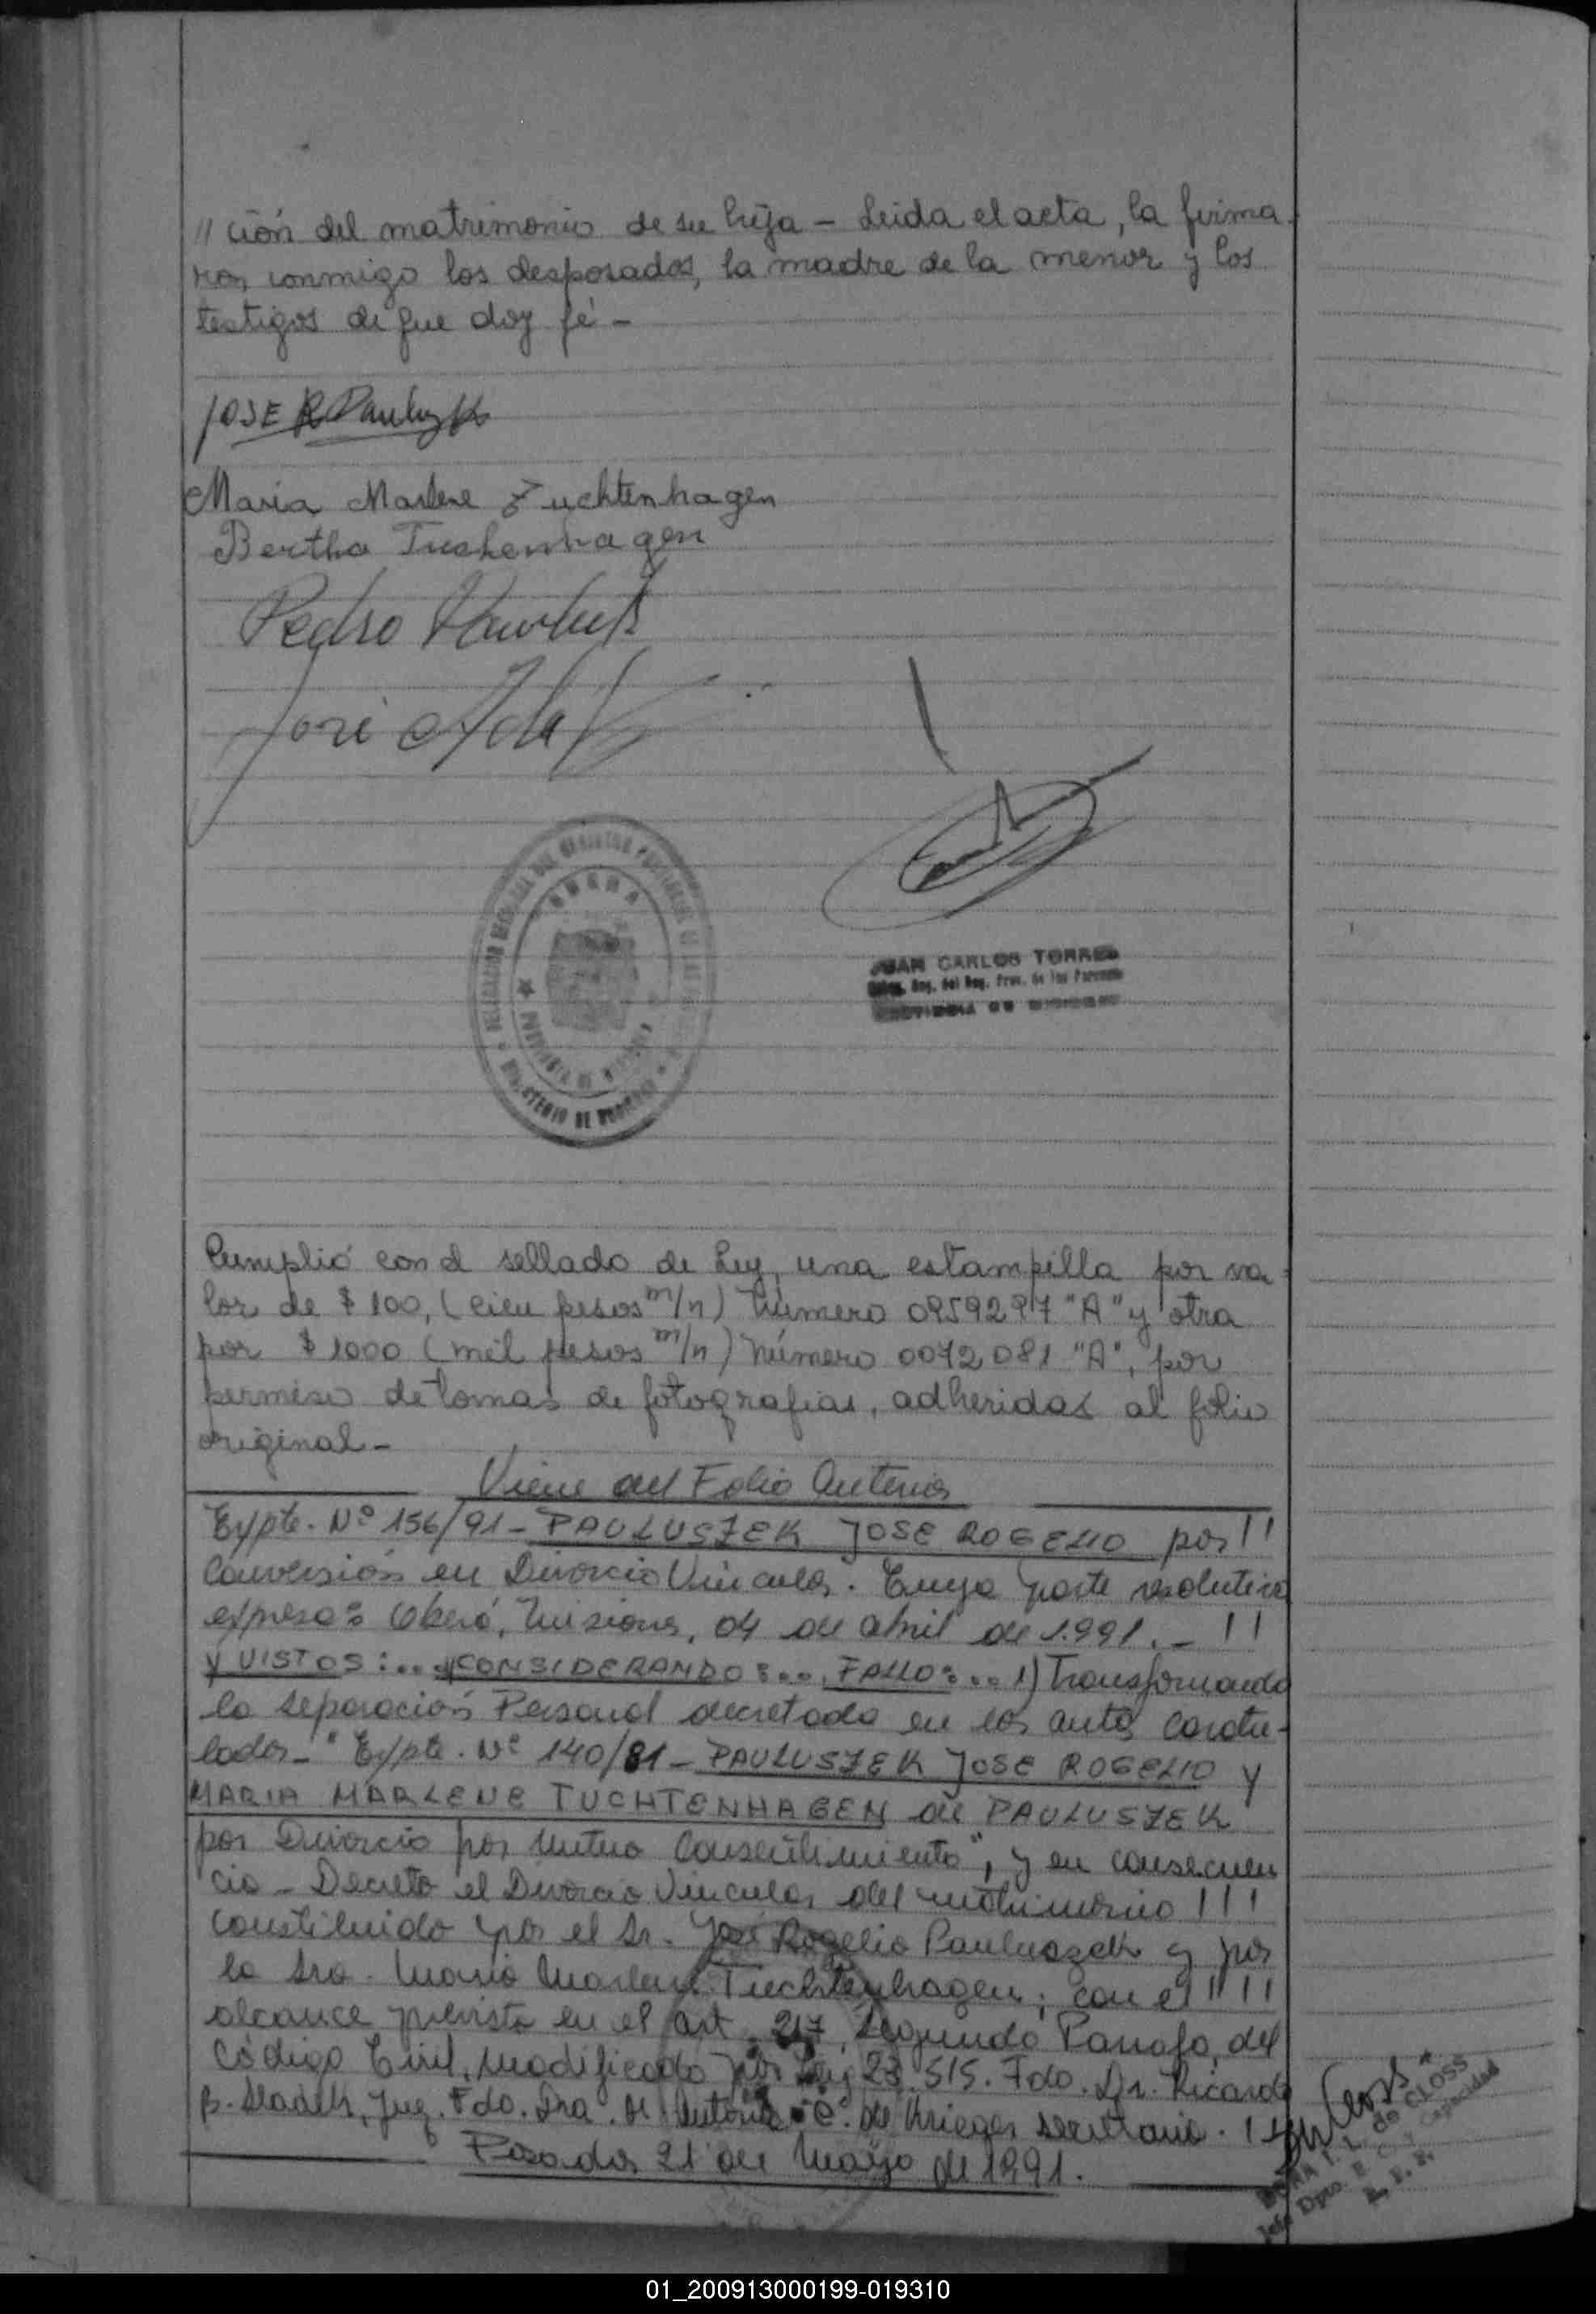 "ción del matrimonio de su hija - Leida el acta, la firma-
ron conmigo los desposados, la madre de la menor y los
testigos de que doy fé -
JOSE R Pauluszek
Maria Marlene Tuchtenhagen
Bertha Tuchtenhagen
Pedro
José
ONERA
PROVINCIA DE MISIONES
MINISTERIO DE
JUAN CARLOS TORRES
Deleg. Reg. del Reg. Prov. de las Personas
PROVINCIA DE MISIONES
Cumplió con el sellado de Ley, una estampilla por va-
lor de $ 100, (cien pesos m/n) Número 0959297 "A" y otra
por $ 1000 (mil pesos m/n) Número 0072081 "A", por
permiso de tomas de fotografias, adheridas al folio
original -
Viene del Folio Anterior
Expte. Nº 156/91 - PAULUSZEK JOSE ROGELIO por !!
Conversión en Divorcio Vincular. Cuya parte resolutiva
expresa: Oberá, Misiones, 04 de abril de 1.991. - !!
Y VISTOS:.. y CONSIDERANDO:... FALLO:.. 1) Transformando
la separación Personal decretada en los autos caratu-
lados - "Expte. Nº 140/81 - PAULUSZEK JOSE ROGELIO y
MARIA MARLENE TUCHTENHAGEN de PAULUSZEK
por Divorcio por Mutuo Consentimiento", y en consecuen
cia - Decreto el Divorcio Vincular del matrimonio !!!
constituido por el Sr. José Rogelio Pauluszek y por
la Sra. Maria Marlene Tuchtenhagen; con el !! !!
alcance previsto en el art. 217, Segundo Parrafo, del
Código Civil, modificado por Ley 23.515. Fdo. Dr. Ricardo
B. Sladek, Juez. Fdo. Dra. M. Antonia C. de Krieger Secretaria. !
Posadas 21 de Mayo de 1991.
de CLOSS
Jefe Dpto. E. C. y Capacidad
R. P. P.
01_200913000199-019310